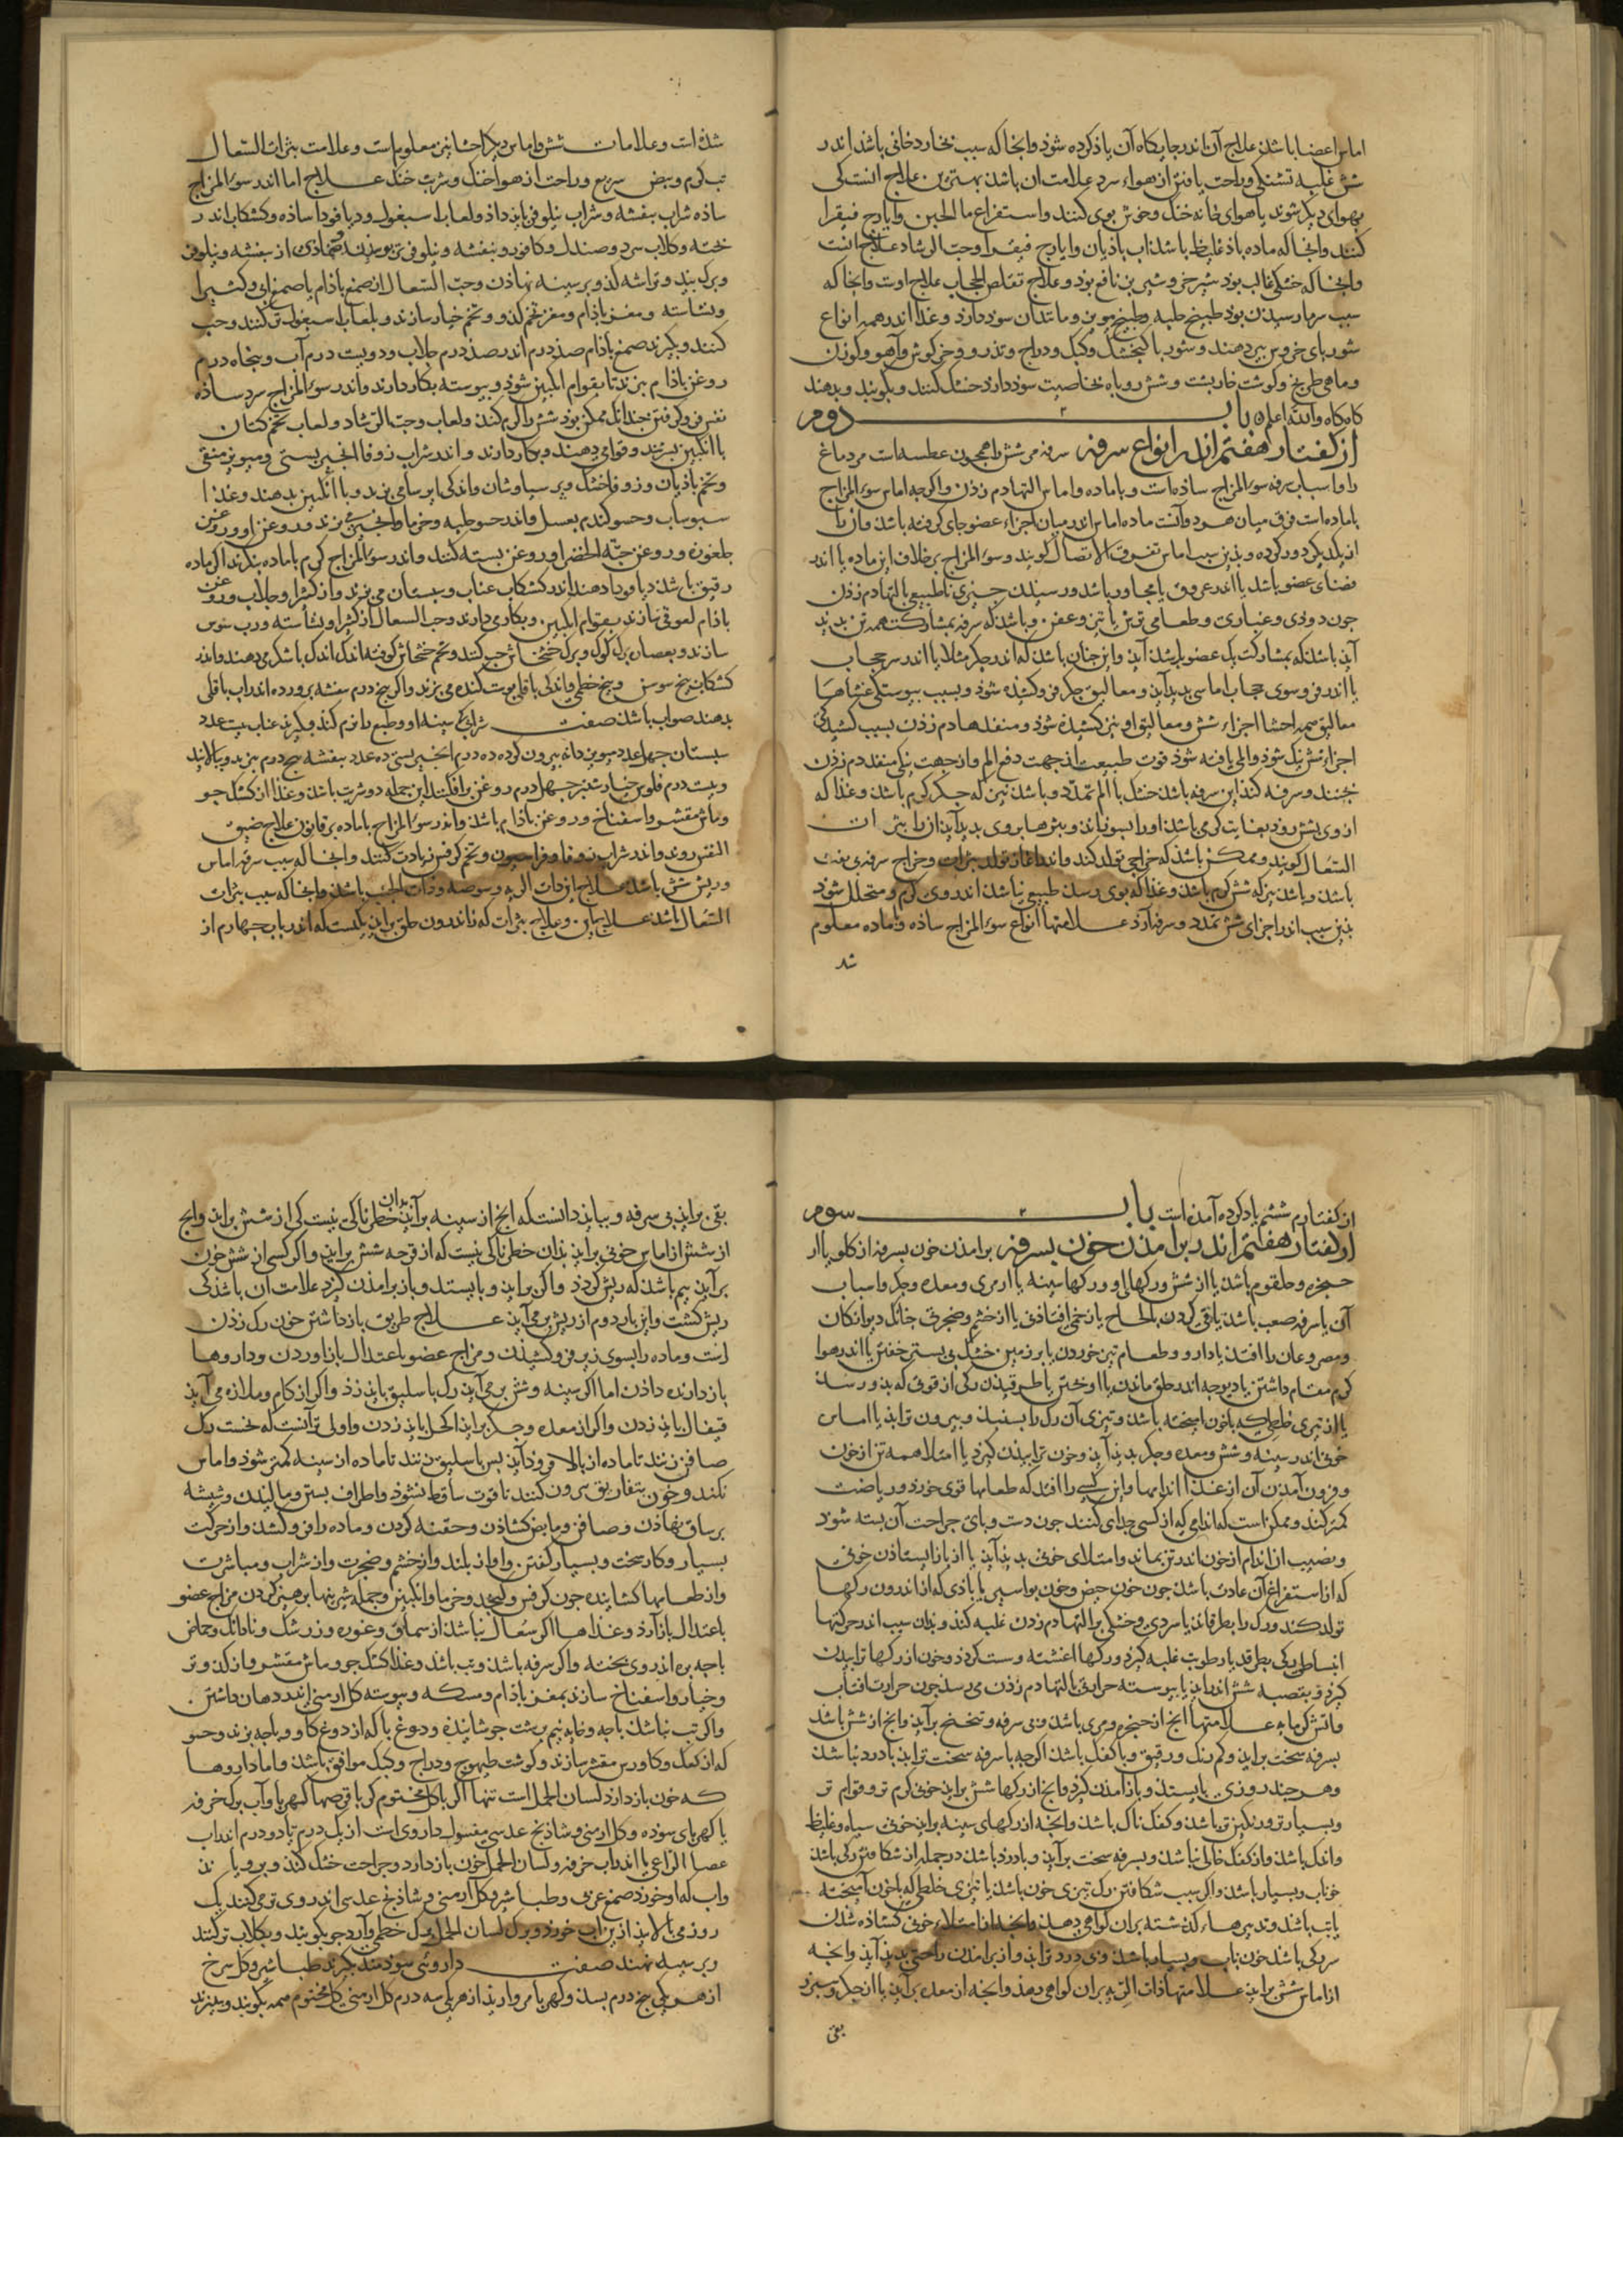 اماس اعضا باشد علاج آن اندر جایکاه آن یاذ کرده شوذ وانجا که سبب بخار دخانی باشذ اندر
شش غلبه تشنکی وراحت یافتن از هواء سرد علامت ان باشذ بهترین علاج انست کی
بهوای دیکر شوند یا هوای خانه خنک وخوش بوی کنند واستفراغ ما الجبن وایارج فیقرا
کنند وانجا که ماده باذ غلیظ باشذ اب باذیان وایارج فیقرا وحب الرشاد علاج انست
وانجا که خشکی غالب بود شیر خر وشیر بز نافع بود وعلاج تقلص الحجاب علاج اوست وانجا که
سبب سرما رسیدن بود طبیخ حلبه وطبیخ مویز ومانند ان سود دارد وغذا اندر همه انواع
شوربای خروس پیر دهند وشوربا کنجشک وکبک ودراج وتذرو وخرکوش وآهو وکوزن
وماهی طریخ وکوشت خاربشت وشش روباه بخاصیت سوذ دارد خشک کنند وبکوبند وبدهند
کاه کاه والله اعلم باب دوم
از کفتار هفتم اندر انواع سرفه سرفه مر شش را همجون عطسه است مر دماغ
را واسباب سرفه سوء المزاج ساذه است وبا ماده واماس التها دم زذن واکرجه اماس سوء المزاج
با ماده است فرق میان هر دو آنست ماده اماس اندر میان اجزاء عضو جای کرفته باشذ وان را
از یکدیکر دور کرده وبذین سبب اماس تفرق الاتصال کویند وسوء المزاج بر خلاف این ماده یا اندر
فضای عضو باشذ یا اندر عروق یا مجاور باشذ ورسیدن چیزی ناطبیعی بالتها دم زذن
جون دوذی وغباری وطعامی ترش یا تیز وعفن وباشذ که سرفه بمشارکت همه تن بدید
آید باشذ که بمشارکت یک عضو بدید آید واین جنان باشذ که اندر جکر مثلا یا اندر سر حجاب
یا اندر فرو سوی حجاب اماسی بدید آید ومعالیق جکر فرو کشیده شوذ وبسبب پیوستکی غشاها
معالیق همه احشا اجزاء شش ومعالیق او نیز کشیده شوذ ومنفذها دم زذن بسبب کشیدکی
اجزاء شش تنک شوذ والمی یافته شوذ قوت طبیعت از جهت دفع الم واز جهت تنکی منفذ دم زذن
بجنبد وسرفه کند این سرفه باشذ خشک با الم تمدد وباشذ نیز که جکر کرم باشذ وغذا که
از وی بشش روذ بغایت کرمی باشذ او را بسوزاند وبثرها بر وی بدید آیذ ان را بثرات
السعال کویند وممکن باشذ که خراجی تولد کند واندر اغاز تولد بثرات وخراج سرفه بی نفث
باشذ وباشذ نیز که شش کرم باشذ وغذا که بوی رسد طبیعی نباشذ اندر وی کرم ومتحلل شوذ
بذین سبب اندر اجزای شش تمدد وسرفه آرذ علامتها انواع سوء المزاج ساذه وبا ماده معلوم
شد
شذه است وعلامات شش واماس دیکر احشا نیز معلوم است وعلامت بثرات السعال
تب کرم ونبض سریع وراحت از هوا خنک وشربت خنک علاج اما اندر سوء المزاج
ساذه شراب بنفشه وشراب نیلوفر باید داذ ولعاب اسبغول ودیاقوذا ساذه وکشکاب اندر
بخته وکلاب سرد وصندل وکافور وبنفشه ونیلوفر می بویند وضماذی از بنفشه ونیلوفر
وبرک بید وتراشه کدو بر سینه نهاذن وحب السعال از صمغ باذام یا صمغ الو وکثیرا
ونشاسته ومغز باذام ومغز تخم کدو وتخم خیار سازند وبلعاب اسبغول تر کنند وحب
کنند وبکیرند صمغ باذام صذ درم اندر صذ درم جلاب ودویست درم آب وبنجاه درم
روغن باذام بپزند تا بقوام انکبین شوذ وبیوسته بکار دارند واندر سوء المزاج سرد ساذه
نفس فرو کرفتن جندانک ممکن بوذ شش را کرم کند ولعاب وحب الرشاد ولعاب تخم کتان
با انکبین بسرشند وقوامی دهند وبکار دارند واندر شراب زوفا انجیر بستی ومویز منقی
وتخم باذیان وزوفا خشک وبر سیاوشان واندکی ایرسا می بزند وبا انکبین بدهند وغذا
سبوساب وحسو کندم بعسل واندر حسو حلبه وخرما وانجیر بزند وروغن او روغن
جلغوزه وروغن حبة الخضرا وروغن بسته کنند واندر سوء المزاج کرم با ماده بنکرند اکر ماده
رقیق باشذ دیاقوذا دهند اندر کشکاب عناب وسبستان می بزند واز کثیرا وجلاب وروغن
باذام لعوقی سازند بقوام انکبین وبکار می دارند وحب السعال از کثیرا ونشاسته ورب سوس
سازند وبعصاره برک کوک وبرک خشخاش حب کنند وتخم خشخاش کوفته اندک اندک با شکر می دهند واندر
کشکاب بیخ سوسن وبیخ خطمی واندکی باقلی بوست کنده می بزند واکر بنج درم بنفشه برورده اندر اب باقلی
بدهند صواب باشذ صفت شرابی که سینه او وطبع را نرم کند بکیرند عناب بیست عدد
سبستان جهل عدد مویز دانه بیرون کرده ده درم انجیر بستی ده عدد بنفشه بنج درم بپزند وببالایند
وبیست درم فلوس خیارشنبر جهار درم روغن برافکنند این جمله دو شربت باشذ وغذا از کشک جو
وماش مقشر واسفناخ وروغن باذام باشذ واندر سوء المزاج با ماده بر قانون علاج ضیق
النفس روند واندر شراب زوفا وفراسیون وتخم کرفس زیادت کنند وانجا که سبب سرفه اماس
وریش شش باشذ علاج از ذات الریه وسوصه وذات الجنب باشذ وانجا که سبب بثرات
السعال باشذ علاج این وعلاج بثرات که اندرون حلق براید یکیست که اندر باب جهارم از
از کفتارم ششم یاد کرده آمده است باب سوم
از کفتار هفتم اندر برامذن خون بسرفه برامذن خون بسرفه از کلو یا از
حنجره وحلقوم باشذ یا از شش ورکها او ورکها سینه یا از مری ومعده وجکر واسباب
آن یا سرفه صعب باشذ یا قی کردن بالحاح یا زخمی افتاذنی یا از خشم وضجرتی جنانک دیوانکان
ومصروعان را افتد یا دارو وطعام تیز خوردن یا بر زمین خشک بی بستر خفتن یا اندر هوا
کرم مقام داشتن یا دیوجه اندر حلق ماندن یا اوختن یا طرقیذن رکی از قوتی که بذو رسد
یا از تیزی خلطی که با خون امیخته باشذ وتیزی آن رک را بسنبذ وبیرون ترابذ یا اماس
خونی اندر سینه وشش ومعده وجکر بدید آید وخون ترابیذن کیرذ یا امتلا همه تن از خون
وفزون آمذن آن از غذا اندامها واین کسی را افتد که طعامها قوی خورد وریاضت
کمتر کند وممکن است که اندامی که از کسی جدای کنند جون دست وبای جراحت آن بسته شوذ
ونصیب ان اندام از خون اندر تن بماند وامتلای خونی بدید آید یا از باز ایستاذن خونی
که از استفراغ آن عادت باشذ جون خون حیض وخون بواسیر یا باذی که از اندرون رکها
تولد کند ورک را بطرقاند یا سردی وخشکی بر التها دم زدن غلبه کند وبدان سبب اندر حرکتها
انبساطی رکی بطرقد یا رطوبت غلبه کیرذ ورکها اغشته وسست کردذ وخون از رکها ترابیذن
کیرذ وبقصبه شش اندر اید یا بیوسته حرارتی بالتها دم زذن می رسد جون حرارت افتاب
واتش کرمابه علامتها انج از حنجره ومری باشذ وبی سرفه وتنحنح برآید وانج از شش باشذ
بسرفه سخت براید وکم رنک ورقیق وبا کفک باشذ اکرجه با سرفه سخت تر اید با درد نباشذ
وهر جند روزی بایستذ وباز آمذن کیرذ وانج از رکها شش براید خونی کرم تر وقوام تر
وبسیارتر ورنکین تر باشذ وکفک ناک باشذ وانجه از رکهای سینه براید خونی سیاه وغلیظ
واندک باشذ واز کفک خالی نباشذ وبسرفه سخت برآید وبا درد باشذ در جمله از شکافتن رکی باشذ
خوناب وبسیار باشذ واکر سبب شکافتن رک تیزی خون باشذ یا تیزی خلطی که با خون آمیخته
یا تب باشذ وتدبیرهاء کذشته بران کواهی دهذ وانجه از امتلاء خونی کشاذه شدن
سر رکی باشذ خون ناب وبسیار باشذ وبی درد تر اید واز برامذن راحتی بدید آید وانجه
از اماس شش براید علامتها ذات الریه بران کواهی دهذ وانجه از معده برآید یا از جکر وسبرز
بقی
بقی براید بی سرفه وبباید دانست که انج از سینه برآید بدان خطرناکی نیست کی از شش براید وانج
از شش از اماس خونی براید بدان خطرناکی نیست که از قرحه شش براید واکر کسی از شش خون
برآید بیم باشذ که ریش کردذ واکر براید وبایستد وباز برامذن کیرد علامت ان باشذ کی
ریش کشت واین بار دوم از ریش بر می آید علاج طریق باز داشتن خون رک زذن
است وماده را بسوی زیر فرو کشیذن ومزاج عضو باعتدال باز اوردن وداروها
باز دارنده داذن اما اکر سینه وشش بر می آید رک باسلیق باید زذ واکر از کام وملازه می آید
قیفال باید زدن واکر از معده وجکر براید اکحل باید زدن واولی تر آنست که نخست رک
صافن زنند تا ماده از بالا فروذ آید بس باسلیق زنند تا ماده از سینه کمتر شوذ واماس
نکند وخون بتفاریق بیرون کنند تا قوت ساقط نشوذ واطراف بستن ومالیدن وشیشه
بر ساق نهاذن وصافن ومابض کشاذن وحقنه کردن وماده را فرو کشد واز حرکت
بسیار وکار سخت وبسیار کفتن واواز بلند واز خشم وضجرت واز شراب ومباشرت
واز طعامها کشاینده جون کرفس وکنجد وخرما وانکبین وجمله شیرینها برهیز کردن مزاج عضو
باعتدال باز آرذ وغذاها اکر سعال نباشذ از سماق وغوره وزرشک وناردانک وحماض
باجه بره اندر وی بخته واکر سرفه باشذ وتب باشذ وغذا کشک جو وماش مقشر واز کدو تر
وخیار واسفناخ سازند بمغز باذام ومسکه وبیوسته کل ارمنی اندر دهان داشتن
واکر تب نباشذ باجه وخایه نیم برشت جوشانیده ودوغ با که از دوغ کاو وباجه بزند وحسو
که از کعک وکاورس مقشر سازند وکوشت طیهوج ودراج وکبک موافق باشذ واما داروها
که خون باز دارد لسان الحمل است تنها اکر با کل مختوم کر با قرصها کهربا وآب برک خرفه
یا کهربای سوده وکل ارمنی وشاذنج عدسی مغسول داروی است از یک درم تا دو درم اندر اب
عصا الراعی یا اندر اب خرفه ولسان الحمل خون باز دارد وجراحت خشک کند وبرویاند
واب که او خورد صمغ عربی وطباشیر وکل ارمنی وشاذنج عدسی اندر وی تر می کنند یک
روز می بالایند ازین اب خورد وبرک لسان الحمل وبرک خطمی وآرد جو بکوبند وبکلاب تر کنند
وبر سینه نهند صفت داروئی سودمند بکیرند طباشیر وکل سرخ
از هر یکی بنج درم بسد وکهربا مروارید از هر یکی سه درم کل ارمنی کل مختوم همه بکوبند وببزند